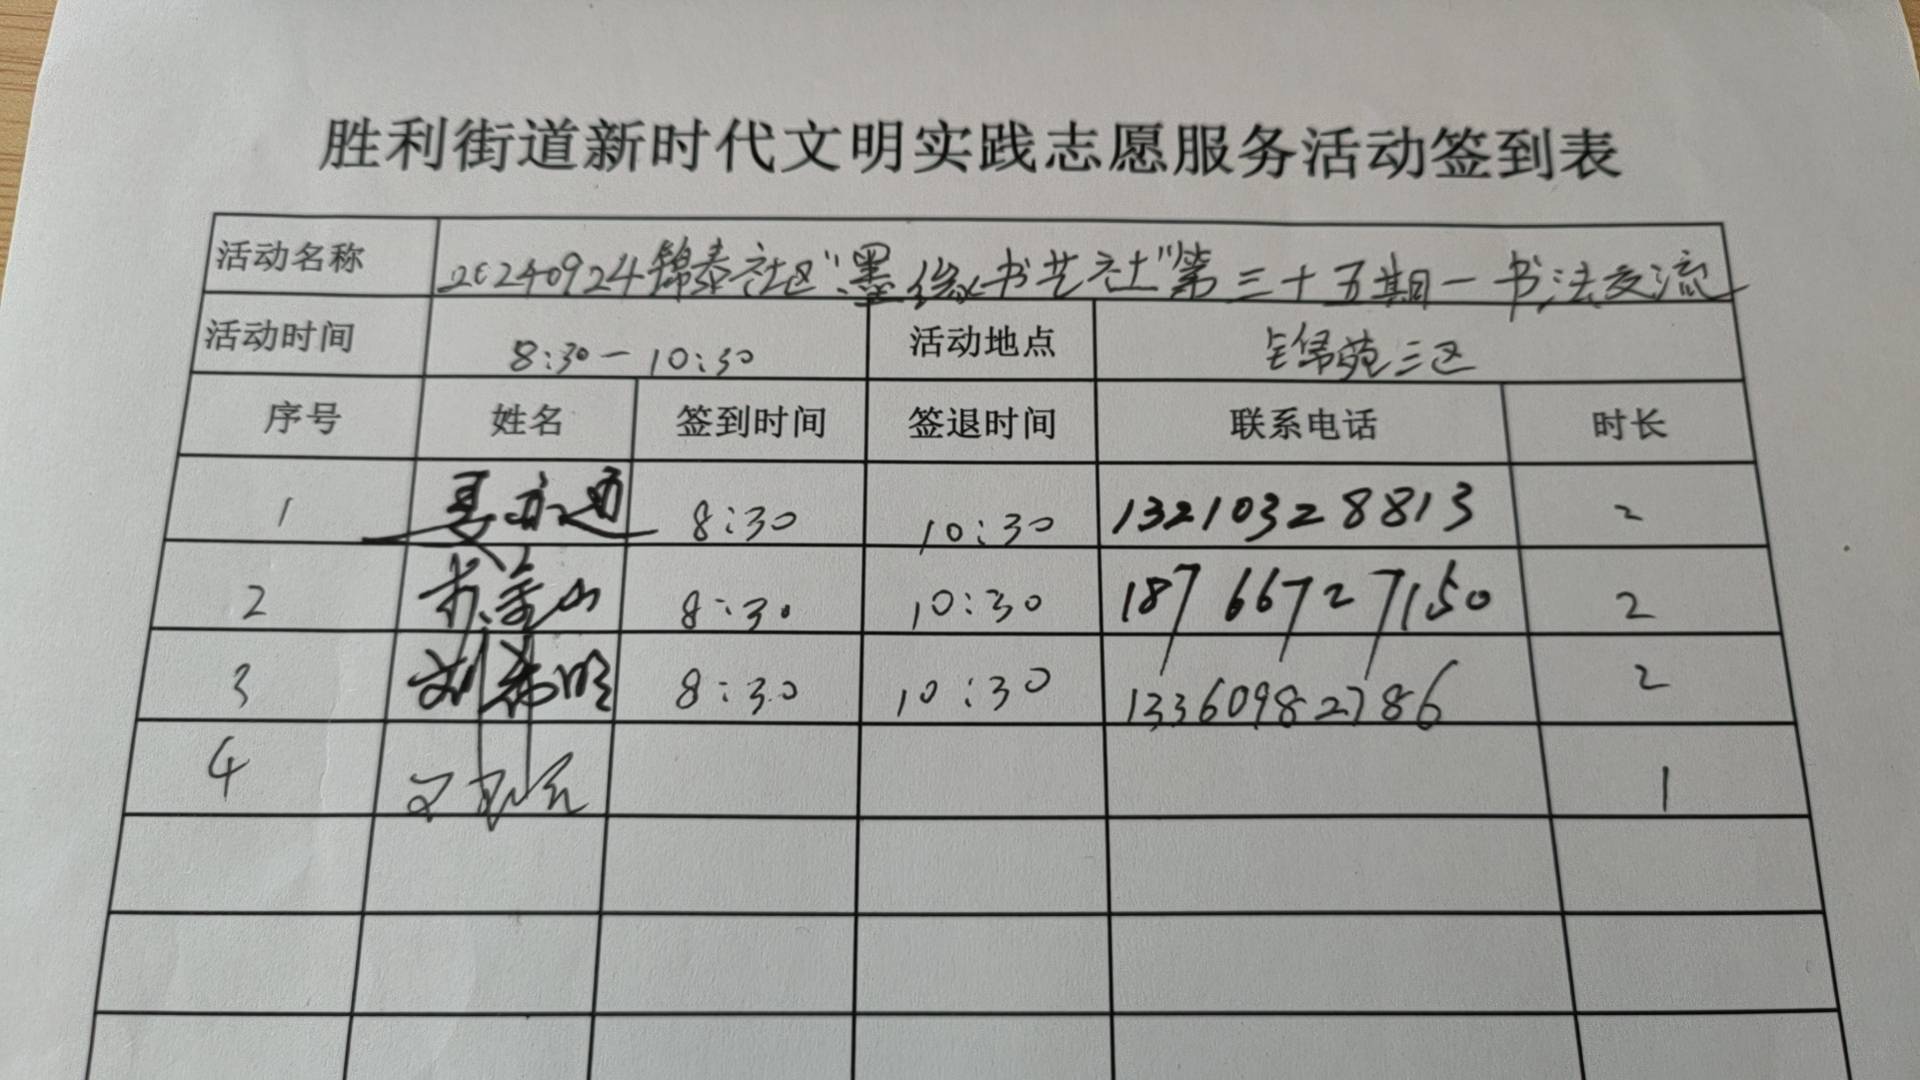 胜利街道新时代文明实践志愿服务活动签到表
活动名称 20240924锦泰社区“墨缘书艺社”第三十五期一书法交流
活动时间 8:30一10:30 活动地点 锦苑三区
序号 姓名 签到时间 签退时间 联系电话 时长
1 8:30 10:30 13210328813 2
2 8:30 10:30 18766727150 2
3 刘希明 8:30 10:30 13360982786 2
4 1